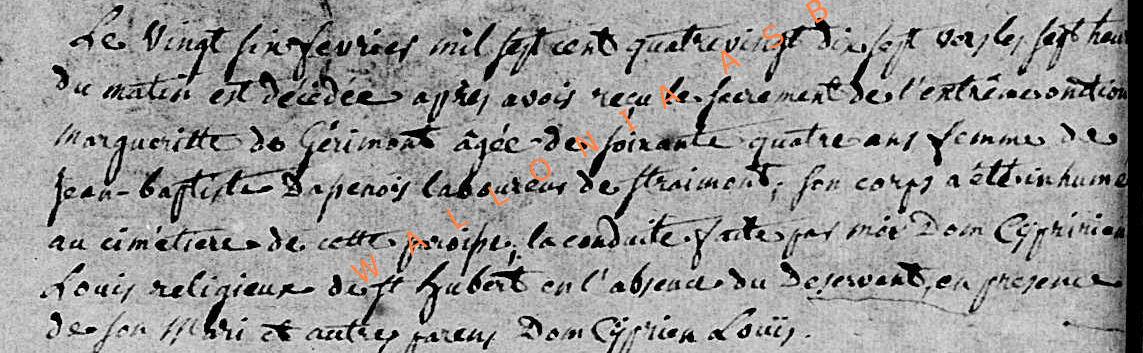 Le vingt six fevrier mil sept cent quatrevingt dix sept vers les sept heu
du matin est décédée apprès avoir reçu le sacrement de l'entrêmeonction
Margueritte de Gérimont âgée de soixante quatre ans femme de
Jean-baptiste Dapenois laboureur de straimont, son corps a été inhumé
au cimétiere de cette paroisse; la conduite faite par moi Dom Cyprinien
Louis religieux de st hubert en l'absence du Deservant, en presence
de son Mari et autres parens Dom Cyprien Louïs.
WALLONIA ASB